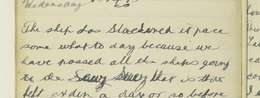 Wednesday 23
The ship has Slackened it pace
some what to day because we
have passed all the ships going
to the Sawy Suey that is that
left Aden a day or so before